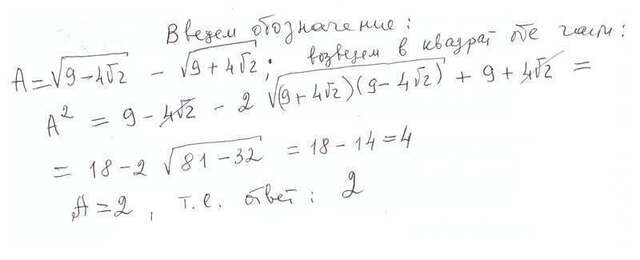 Введем обозначение:
A = √(9-4√2) - √(9+4√2); возведем в квадрат обе части:
A² = 9 - 4√2 - 2 √((9+4√2)(9-4√2)) + 9 + 4√2 =
= 18 - 2 √(81-32) = 18 - 14 = 4
A = 2, т.е. ответ: 2